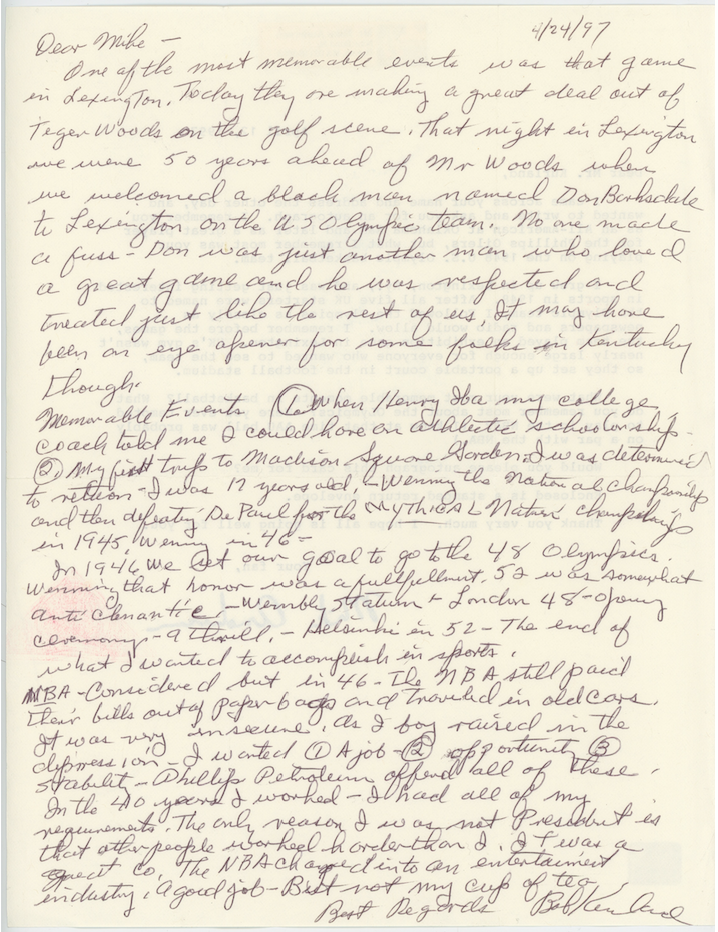 4/24/97
Dear Mike –
One of the most memorable events was that game
in Lexington. Today they are making a great deal out of
Teger Woods on the golf scene. That night in Lexington
we were 50 years ahead of Mr Woods when
we welcomed a black man named Don Barksdale
to Lexington on the US Olympic team. No one made
a fuss – Don was just another man who loved
a great game and he was respected and
treated just like the rest of us. It may have
been an eye opener for some folks in Kentucky
though.
Memorable Events ① When Henry Iba my college
coach told me I could have an athletic schoolorship –
② My first trip to Madison Square Garden, I was determined
to return – I was 17 years old, – Wenning the National Championship
and then defeating DePaul for the MYTHICAL Nation' championship
in 1945, Wenning in 46 –
In 1946 we set our goal to go to the 48 Olympics.
Wenning that honor was a fullfullment. 52 was somewhat
anti climantic – Wembly Statium & London 48 – Opening
ceremony – a thrill. – Helsinki in 52 – The end of
what I wanted to accomplish in sports.
NBA – Considered but in 46 – the NBA still paid
their bills out of paper bags and traveled in old cars.
It was very insecure. As I boy raised in the
depression – I wanted ① A job – ② opportunity ③
Stability – Phillips Petroleum offered all of these.
In the 40 years I worked – I had all of my
requirements. The only reason I was not President is
that other people worked harder than I. It was a
great co. The NBA changed into an entertainment
industry. A good job – But not my cup of tea
Best Regards Bob Kurland